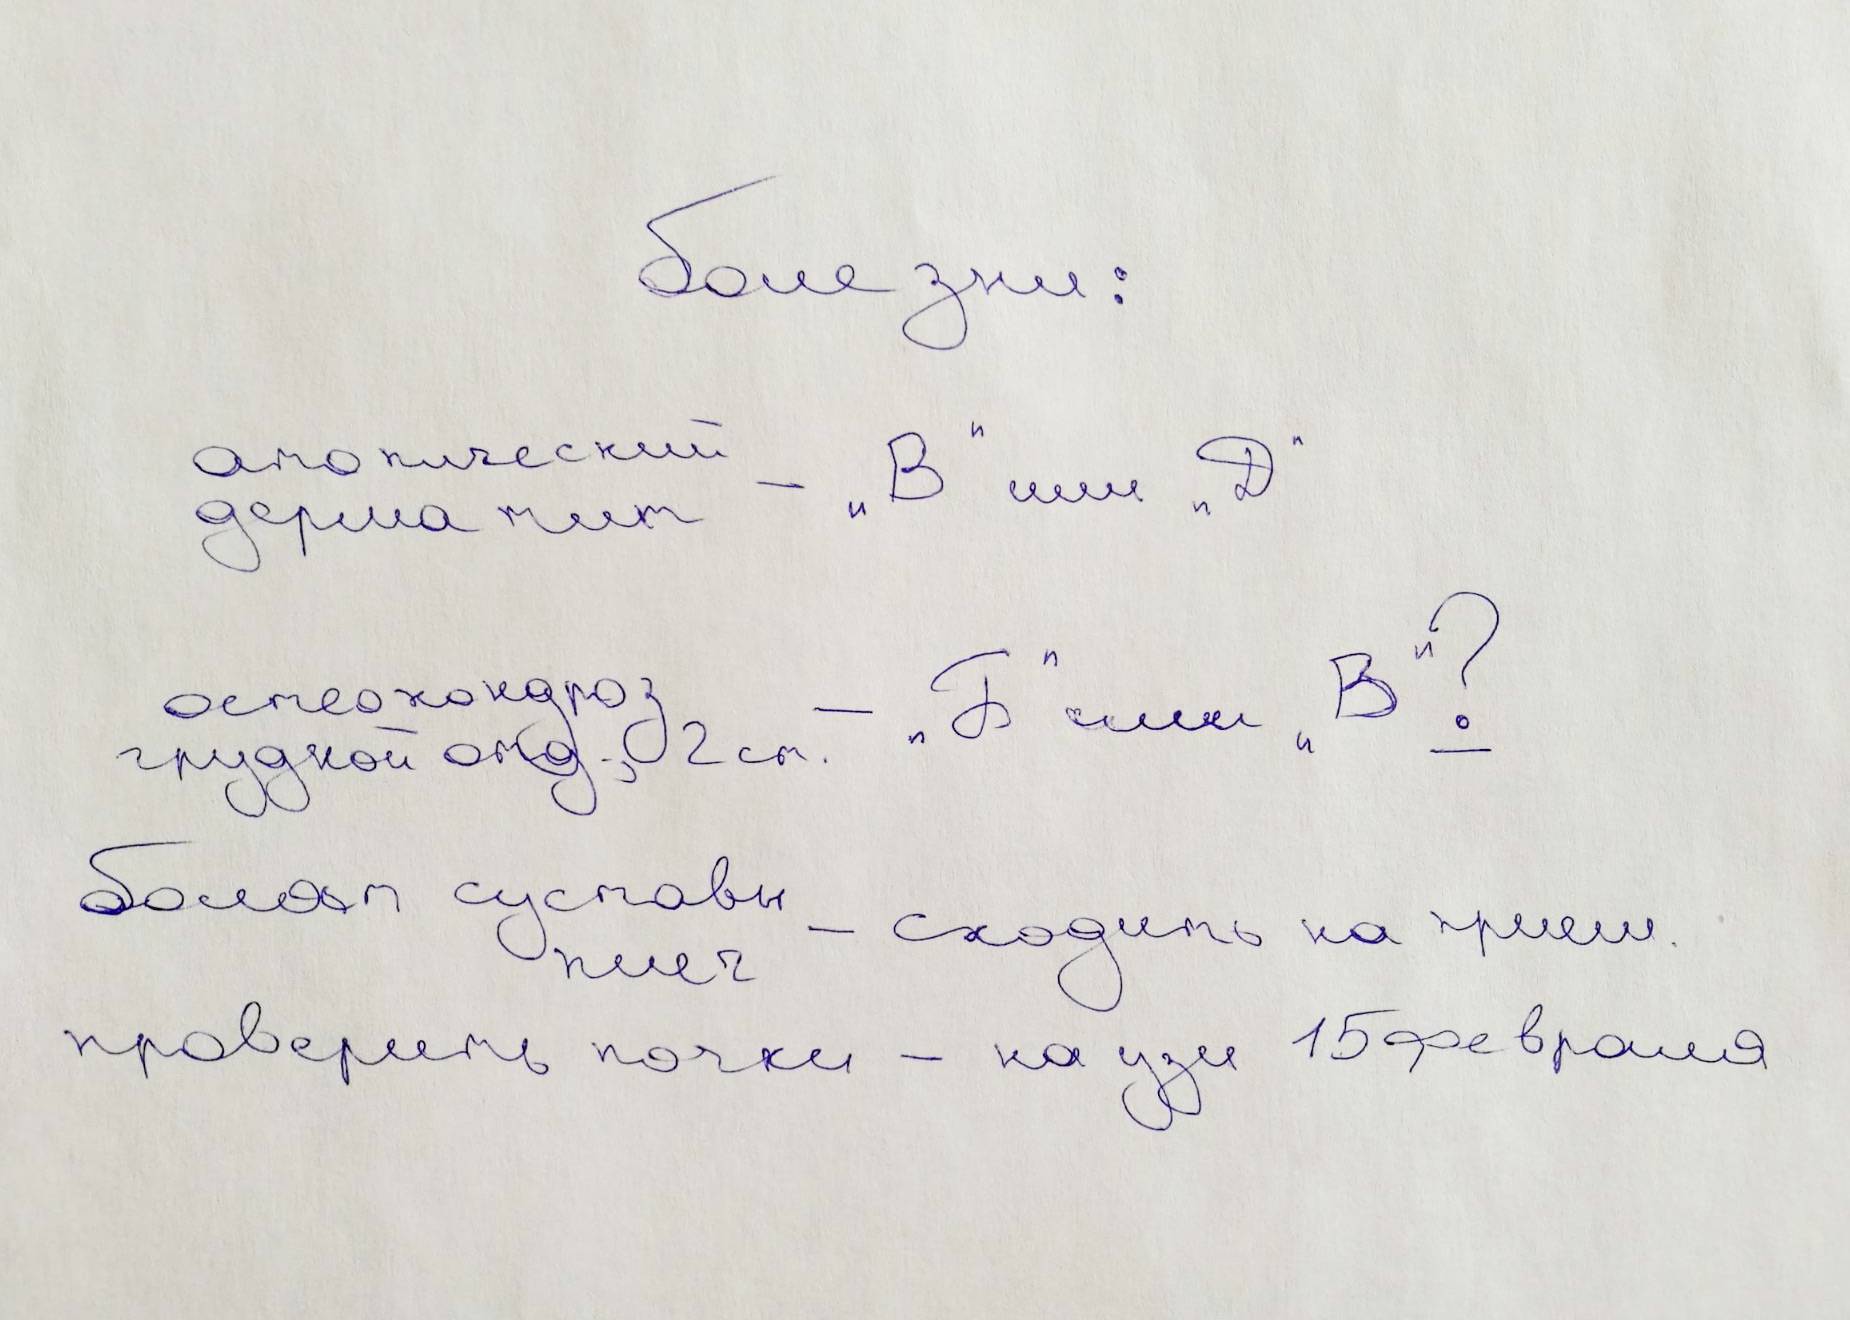 болезни:
атопический
дерматит – „В" или „Д"
остеохондроз
грудной отд., 2 ст. – „Б" или „В"?
болят суставы
плеч – сходить на прием.
проверить почки – на узи 15 февраля